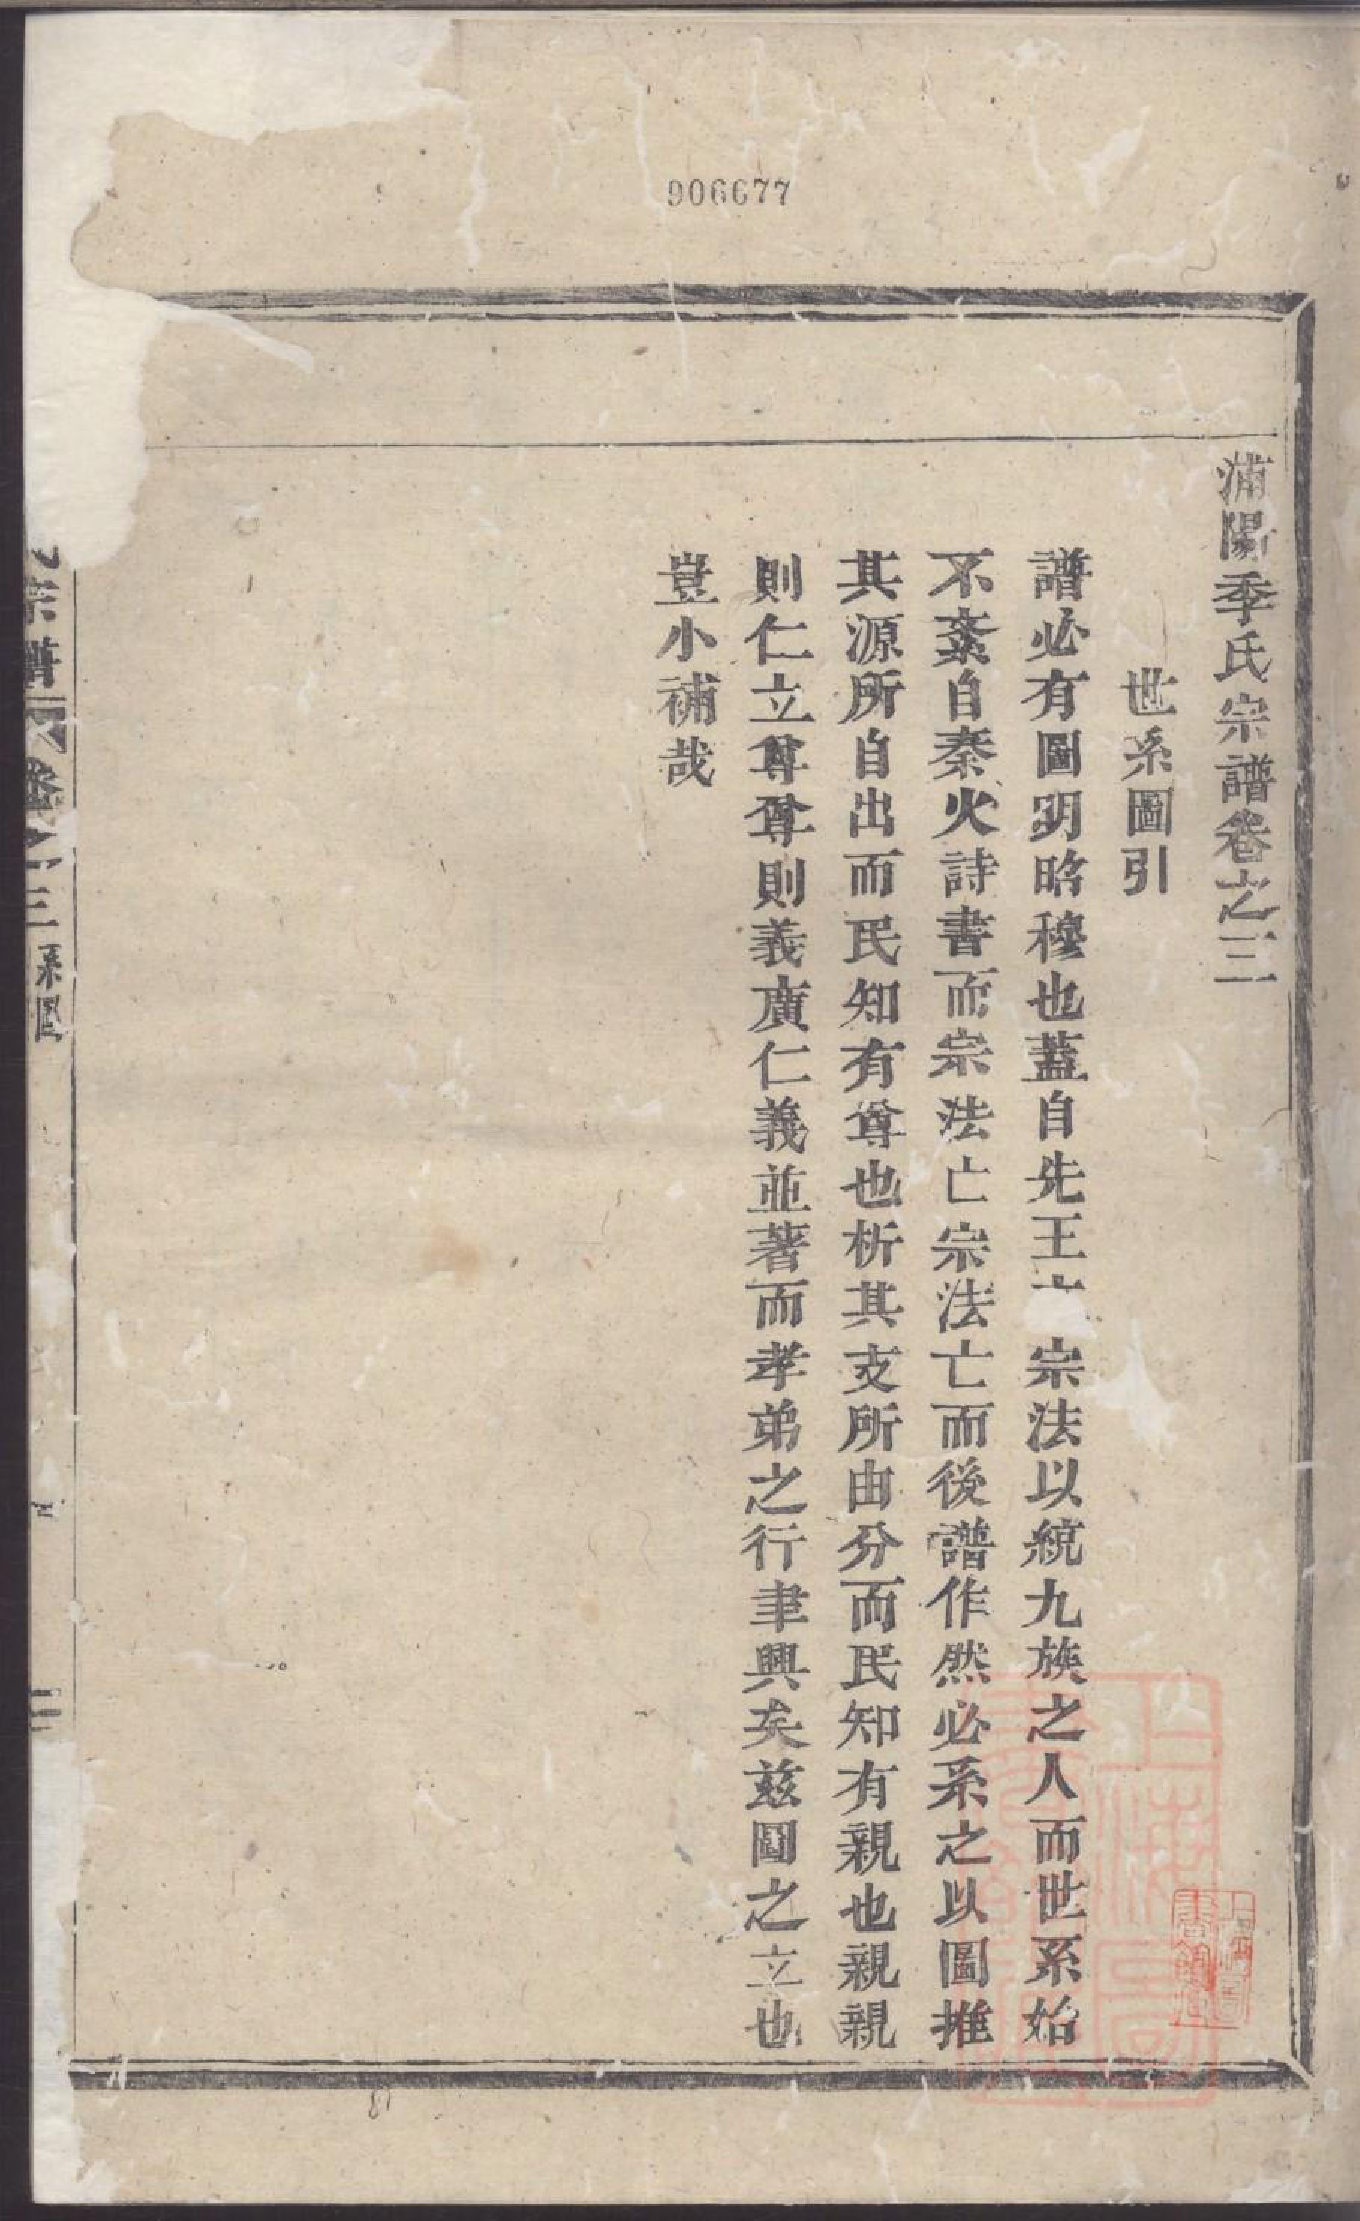 906677
浦陽季氏宗譜卷之三
世系圖引
譜必有圖明昭穆也蓋自先王宗法以統九族之人而世系始
不紊自秦火詩書而宗法亡宗法亡而後譜作然必系之以圖推
其源所自出而民知有尊也析其支所由分而民知有親也親親
則仁立尊尊則義廣仁義並著而孝弟之行聿興矣茲圖之立也
豈小補哉
宗譜 卷之三 系圖
上海圖書館藏
上海圖書館藏